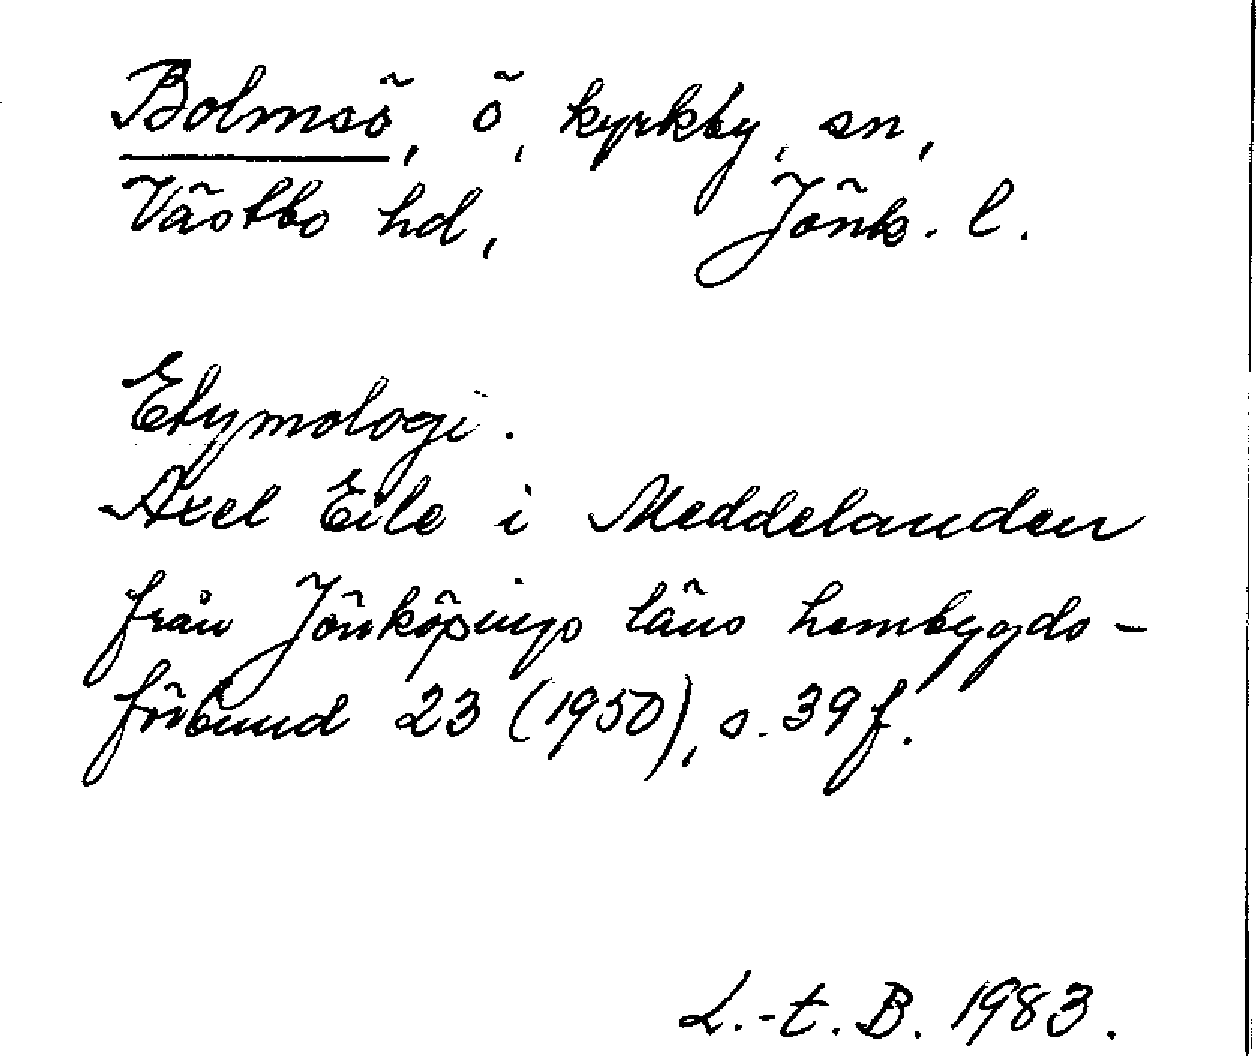 Bolmsö, ö, kyrkby, sn,
Västbo hd, Jönk. l.
Etymologi.
Axel Eile i Meddelanden
från Jönköpings läns hembygds-
förbund 23 (1950), s. 39 f.
L.-t. B. 1983.